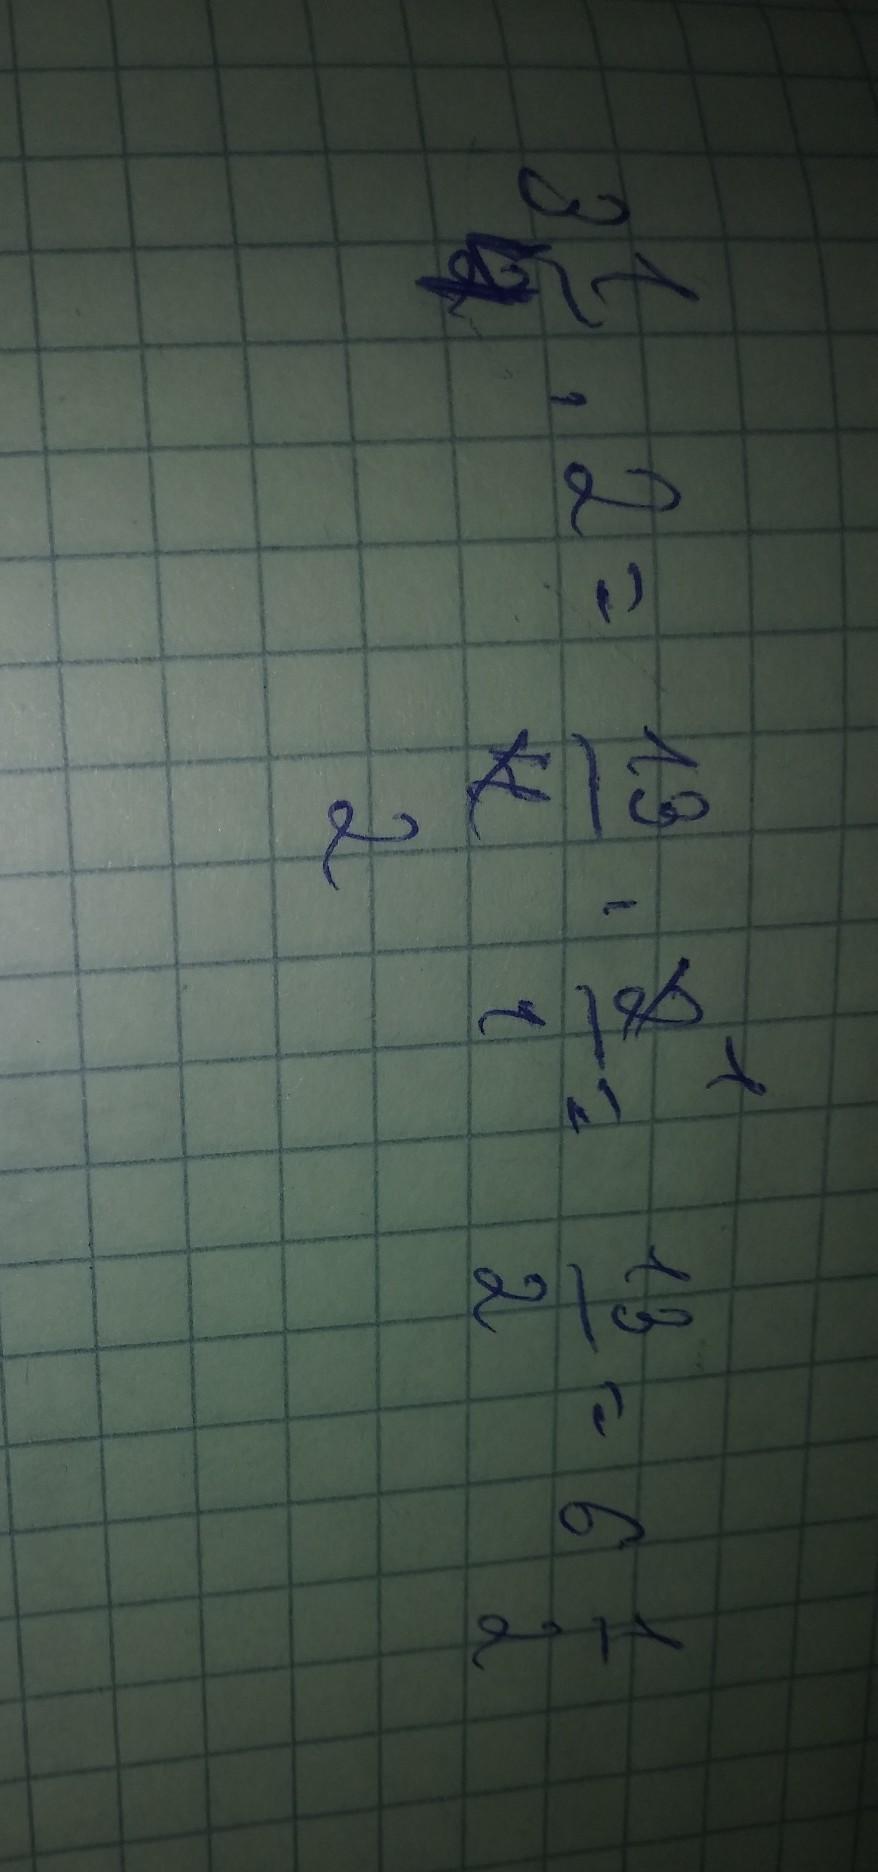 3 1/4 · 2 = 13/4 · 2/1 = 13/2 = 6 1/2
2 1